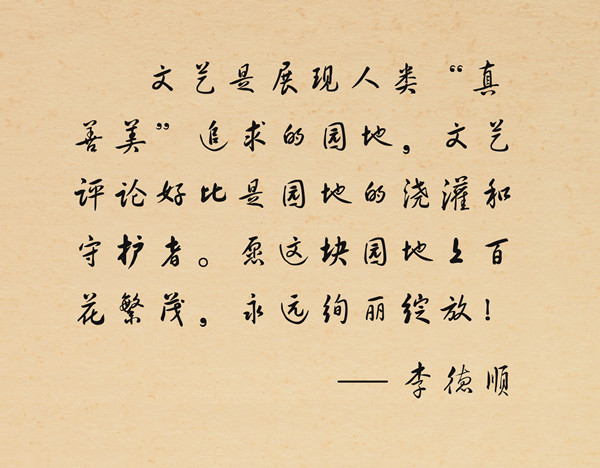 文艺是展现人类“真
善美”追求的园地，文艺
评论好比是园地的浇灌和
守护者。愿这块园地上百
花繁茂，永远绚丽绽放！
——李德顺